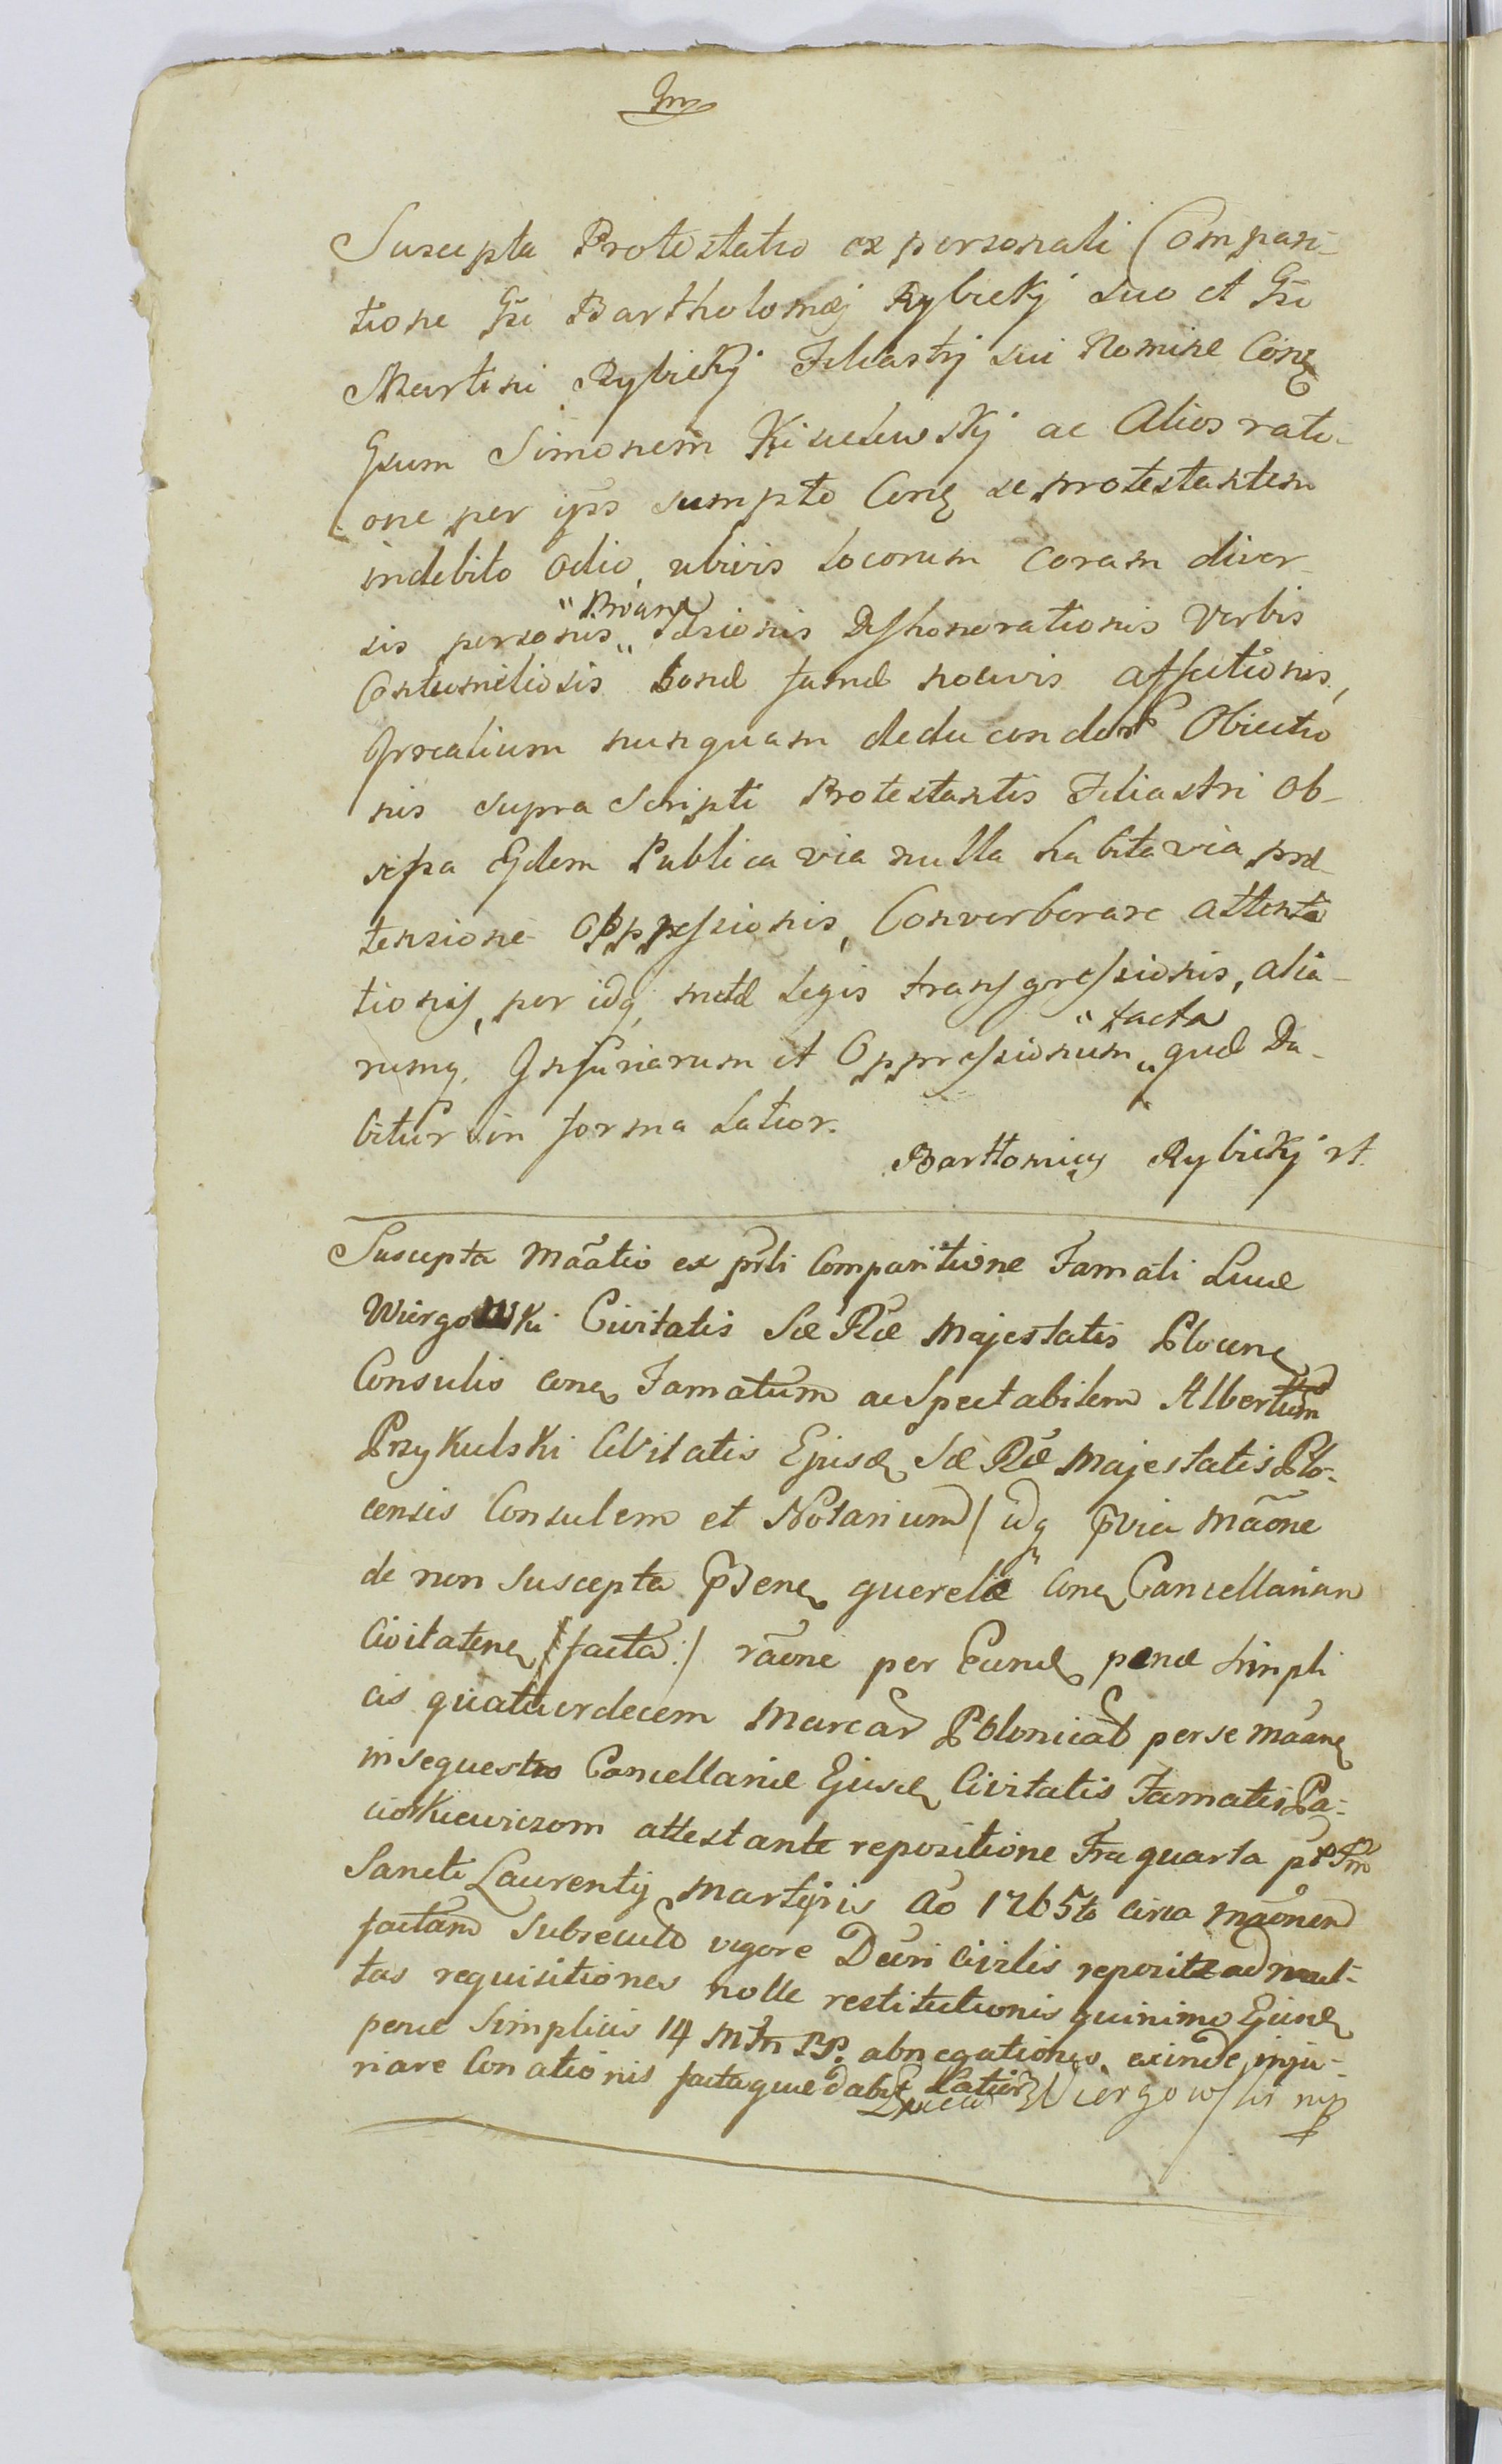 Suscepta Protestatio ex personali Compari-
tione Gsi Bartholomæj Rybickÿ suo et Gsi
Martini Rybickÿ Filiastrj sui Nomine Conq
Gsum Simonem Kisielewskÿ ac Alios rati-
one per ipss sumpto Conq se protestantem
indebito odio, ubivis Locorum coram diver-
sis personis " " læsionis Dehonorationis Verbis
Contumeliosis bonæ famæ nocivis affectionis,
nunquam deducendor Obiectio
nis supra Scripti Protestantis Filiastri Ob-
sessa Ejdem Publica via nulla habita via præ-
tensione Oppressionis, Converberare attenta
tionis, per idq, metæ Legis transgressionis, alia-
" facta
rumq. Injuriarum et Oppressionum " quæ Da-
bitur in forma Latior.
Bartłomiey Rybickÿ rt.
Suscepta Māatio ex prli Comparitione Famati Lucæ
Wiergowski Civitatis Sæ Ræ Majestatis Plocens
Consulis conq Famatum ac Spectabilem Albertum
Przykulski Civitatis Ejusd Sæ Ræ Majestatis Plo-
censis Consulem et Notarium / idq p̄via Māōne
de non suscepta querelæ conq Cancellariam
Civitatens facta :/ rāone per Eund penæ simpli
cis quatuordecem Marcar Polonicar per se
in sequestro Cancellariæ Ejusd Civitatis Famatis Pa-
ciorkiewiczom attestante repositione Fra quarta pt Fm
Sancti Laurentÿ Martyris Ao 1765to circa Māonem
factam Subsecuto vigore Decri Civilis repositæ ad mul-
tas requisitiones nolle restitutionis quinimo Ejusd
penæ Simplicis 14 PP. abnegationis, exinde inju-
riare Conationis facta quæ dabit Latior
Wiergowski mp